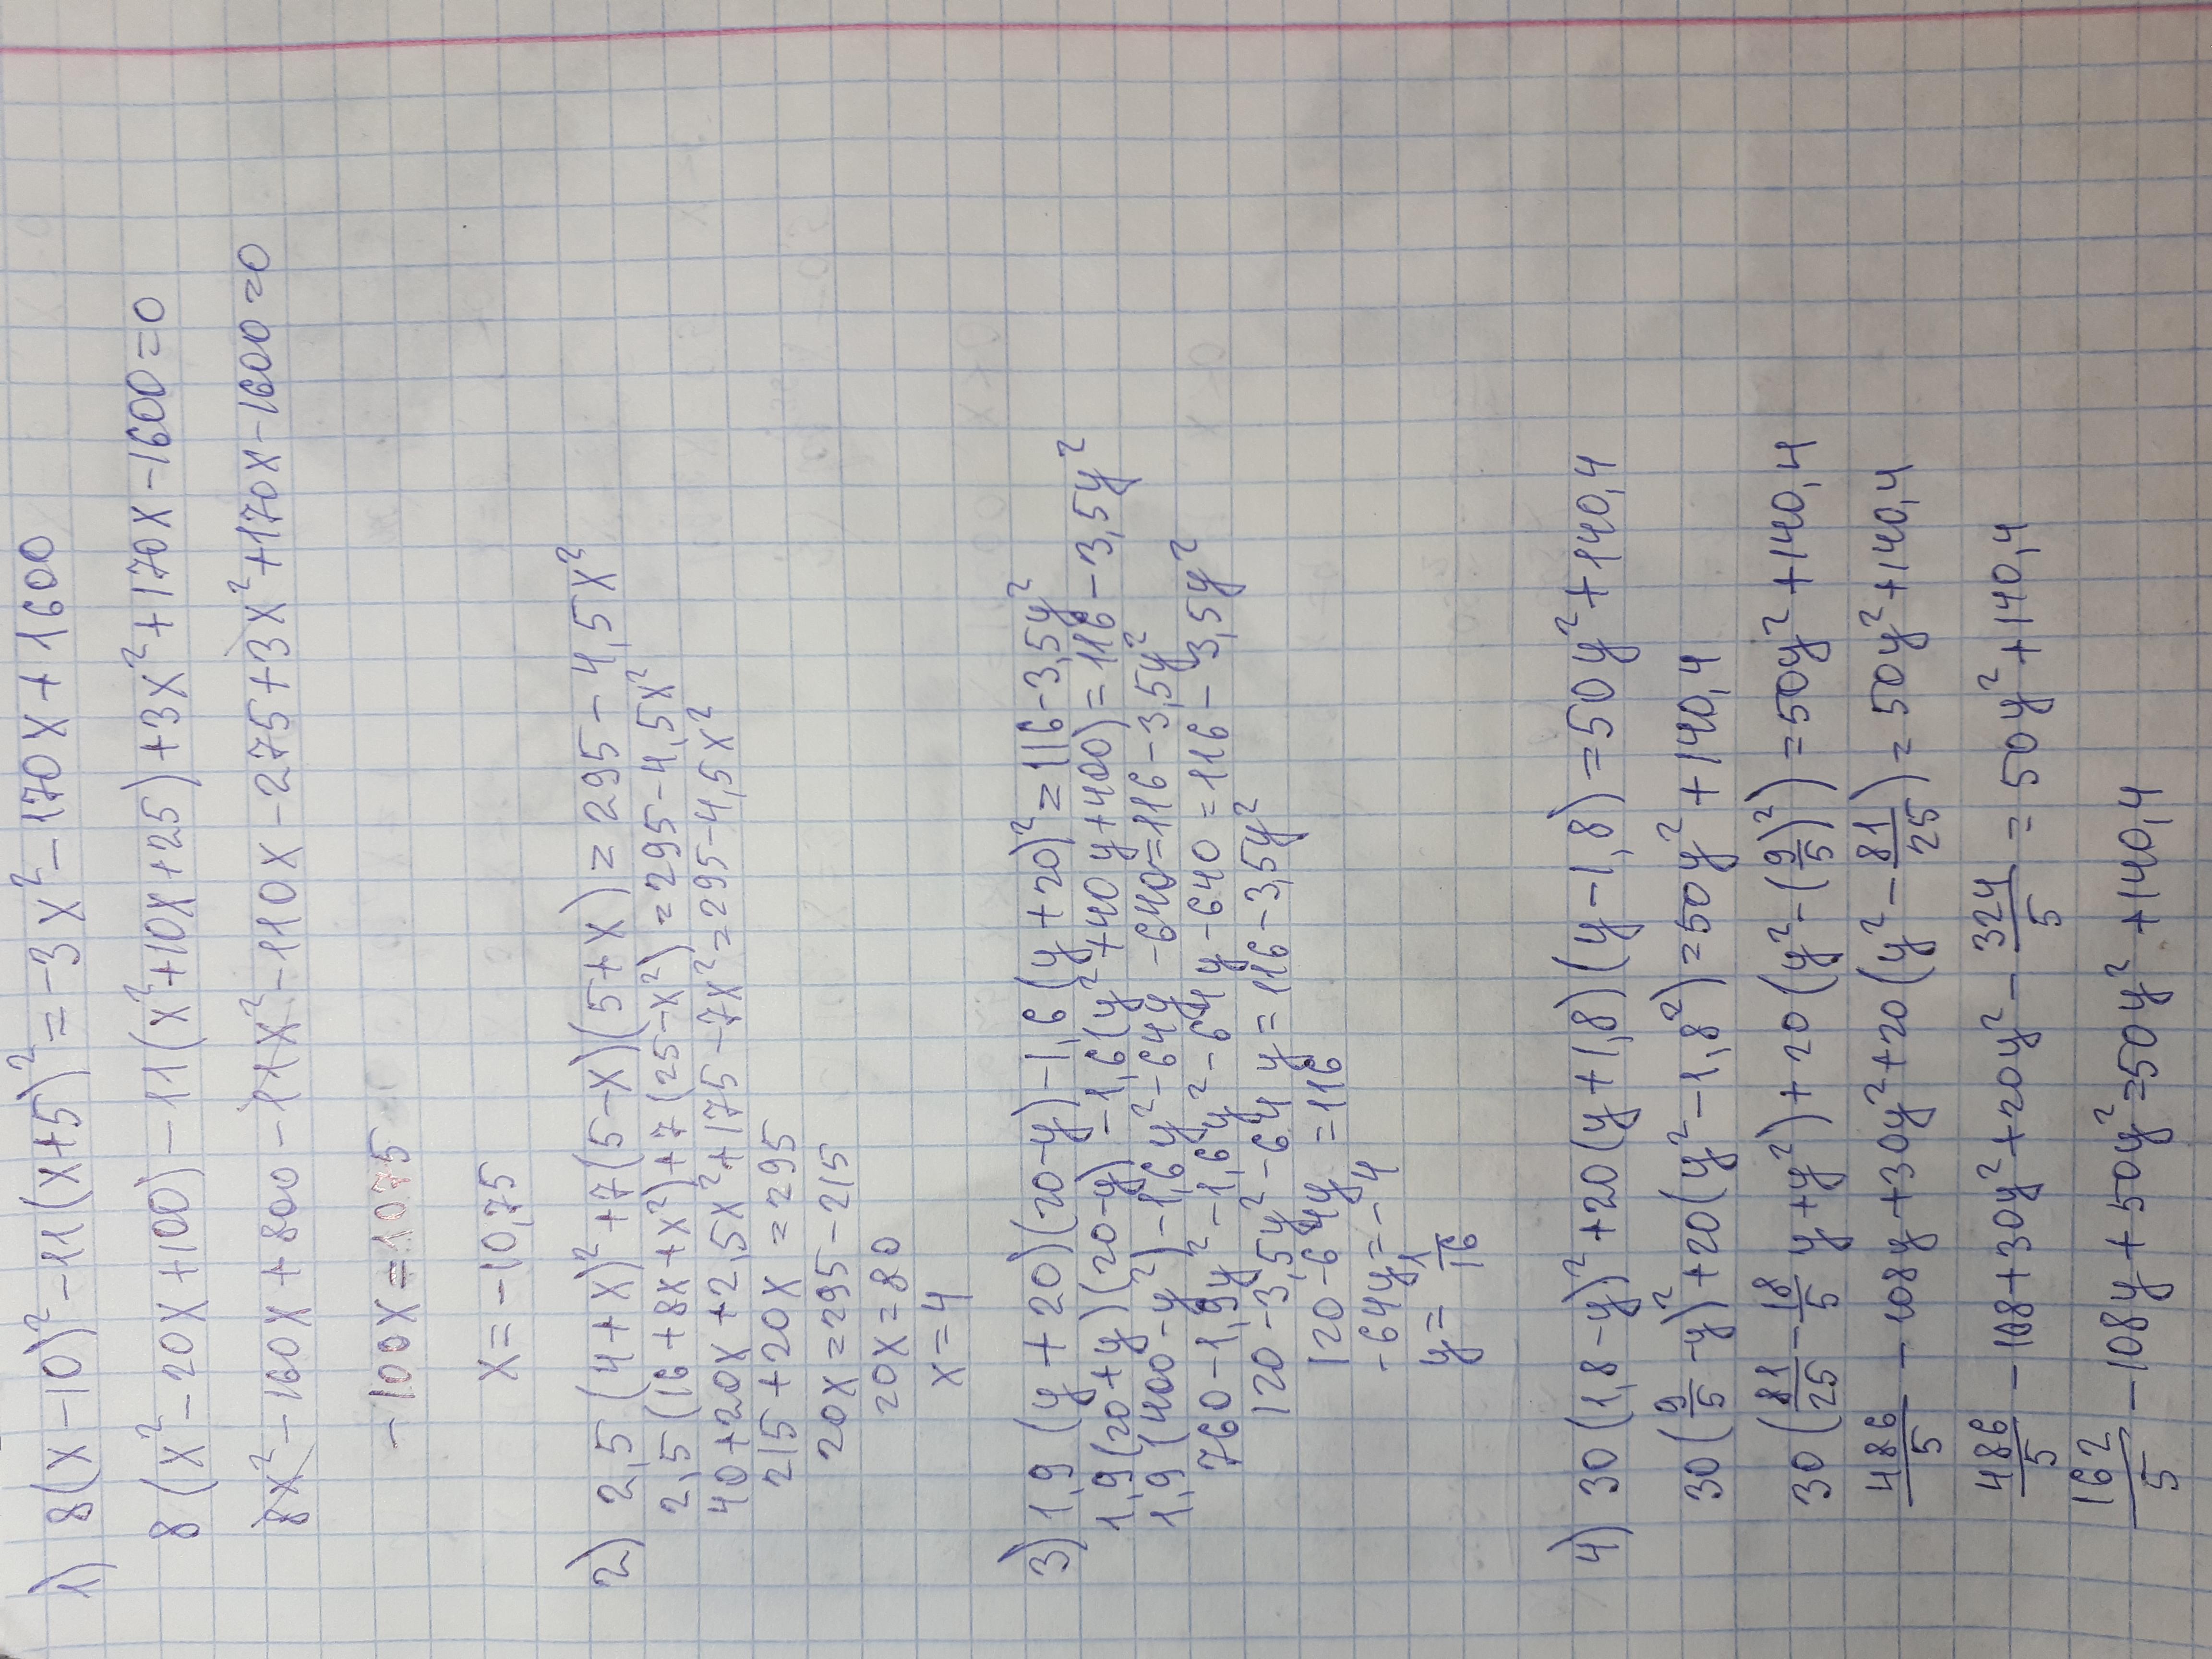 1) 8(x-10)²-11(x+5)²=-3x²-170x+1600
8(x²-20x+100)-11(x²+10x+25)+3x²+170x-1600=0
8x²-160x+800-11x²-110x-275+3x²+170x-1600=0
-100x=1075
x=-10,75
2) 2,5(4+x)²+7(5-x)(5+x)=295-4,5x²
2,5(16+8x+x²)+7(25-x²)=295-4,5x²
40+20x+2,5x²+175-7x²=295-4,5x²
215+20x=295
20x=295-215
20x=80
x=4
3) 1,9(y+20)(20-y)-1,6(y+20)²=116-3,5y²
1,9(20+y)(20-y)-1,6(y²+40y+400)=116-3,5y²
1,9(400-y²)-1,6y²-64y-640=116-3,5y²
760-1,9y²-1,6y²-64y-640=116-3,5y²
120-3,5y²-64y=116-3,5y²
120-64y=116
-64y=-4
y=1/16
4) 30(1,8-y)²+20(y+1,8)(y-1,8)=50y²+140,4
30(9/5-y)²+20(y²-1,8²)=50y²+140,4
30(81/25-18/5y+y²)+20(y²-(9/5)²)=50y²+140,4
486/5-108y+30y²+20(y²-81/25)=50y²+140,4
486/5-108+30y²+20y²-324/5=50y²+140,4
162/5-108y+50y²=50y²+140,4